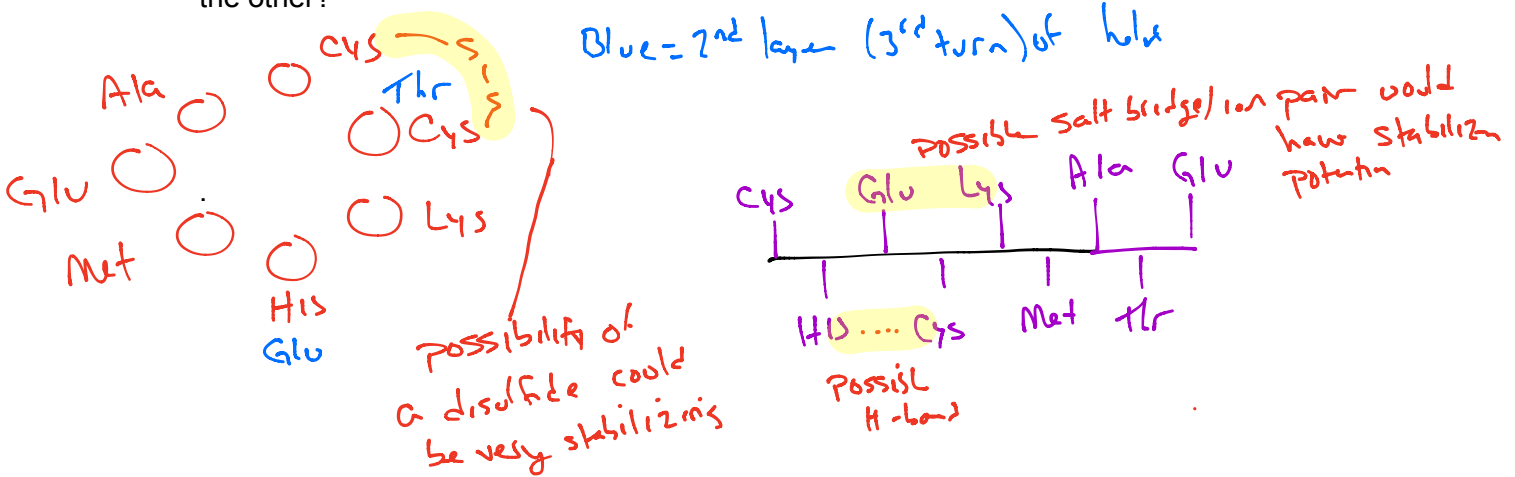 the other?
Cys S
S
Thr
Cys
Ala
Glu
Met
Lys
His
Glu
Blue = 2nd layer (3rd turn) of helix
possibility of
a disulfide could
be very stabilizing
possible salt bridge/ion pair would
have stabilizin
potential
Cys Glu Lys Ala Glu
His .... Cys Met Thr
Possibl
H-bond